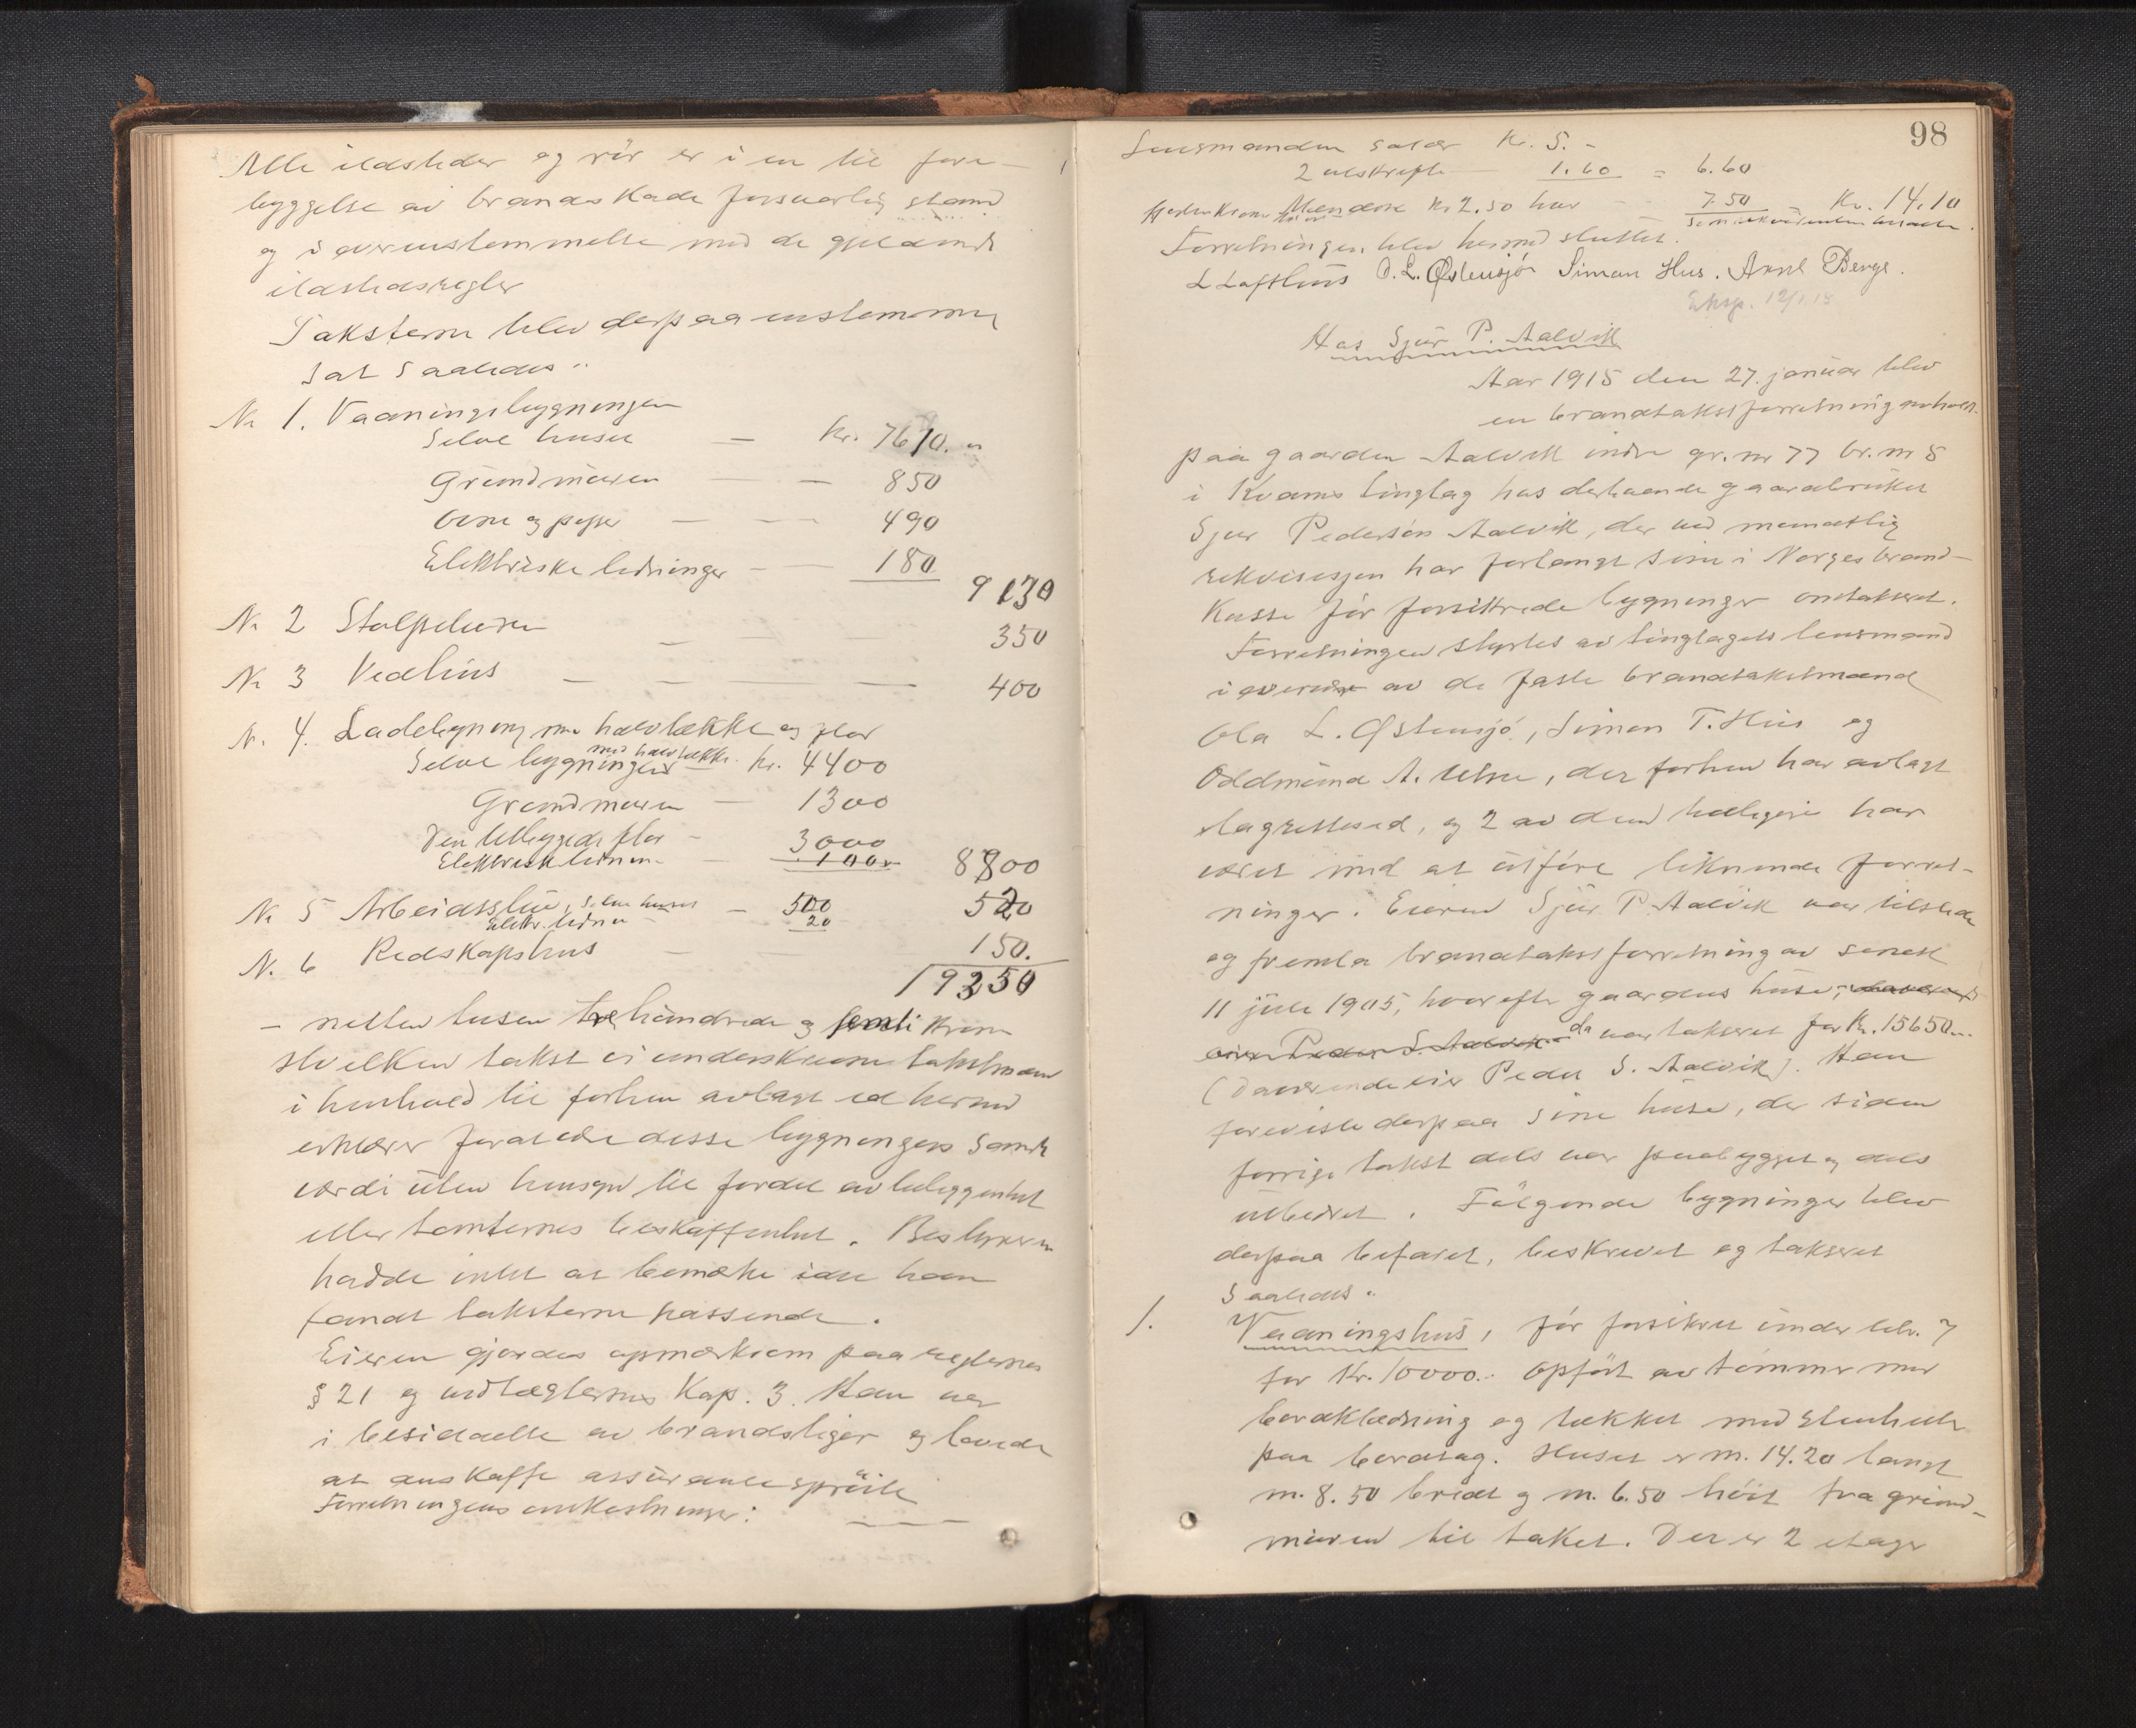 Alle ildsteder og rör er i en til fore-
byggelse av brandskade forsvarlig stand
og i overenstemmelse med de gjeldende
ildstedsregler
Taksterne blev derpaa enstemmig
sat saaledes:
No 1. Vaaningsbygningen
Selve huset — Kr. 7610.
Grundmuren — 850
Ovne og peiser — 490
Elektriske ledninger — 180
9130
No 2 Stolpeburen — 350
No 3 Vedhus — 400
No 4. Ladebygning med halvtække og flor
Selve bygningen med halvtække Kr. 4400
Grundmuren — 1300
Den tilbyggede flor — 3000
Elektrisk ledning — 100 8800
No 5 Arbeidsstue, selve huset — 500 520
Elektr. ledning 20
No. 6 Redskapshus — 150.
19350
– nitten tusen trehundrede og femti kroner
Hvilken takst vi underskrevne takstmænd
i henhold til forhen avlagt ed herved
erklærer for at være disse bygningers sande
værdi uten hensyn til fordel av beliggenhet
eller tomternes beskaffenhet. Bestyreren
hadde intet at bemerke idet han
fandt taksterne passende.
Eieren gjordes opmerksom paa reglernes
§ 21 og vedtægternes Kap. 3. Han var
i besiddelse av brandstiger og lovede
at anskaffe assurancesprøite
Forretningens omkostninger:
98
Lensmanden salær Kr. 5.-
2 utskrifter — 1.60 = 6.60
Mændene Kr 2.50 hver 7.50 Kr. 14.10
Forretningen blev hermed sluttet.
L Lofthus O. L. Østensjö Simon Hus. Arne Berge.
Eksp. 12/1.15
Hos Sjur P. Aalvik
Aar 1915 den 27. januar blev
en brandtakstforretning avholdt
paa gaarden Aalvik indre gr. nr 77 br. nr 5
i Kvams tinglag hos derboende gaardbruker
Sjur Pedersen Aalvik, der ved mundtlig
rekvisisjon har forlangt sine i Norges Brand-
kasse før forsikrede bygninger omtakseret.
Forretningen styrtes av tinglagets lensmand
i overvær av de faste brandtakstmænd
Ola L. Østensjö, Simon T. Hus og
Oddmund A. , der forhen har avlagt
lagretteed, og 2 av dem tidligere har
været med at utføre liknende forret-
ninger. Eieren Sjur P. Aalvik var tilstede
og fremla brandtakstforretning av sidst
11 juli 1905, hvorefter gaardens huse,
eier Peder S. Aalvik da var takseret for Kr. 15650.
(Daværende eier Peder S. Aalvik). Han
foreviste derpaa sine huse, der siden
forrige takst dels var paabygget og dels
utbedret. Følgende bygninger blev
derpaa befaret, beskrevet og takseret
saaledes:
1. Vaaningshus, før forsikret under litr. 7
for Kr. 10000.- Opført av tømmer med
bordklædning og tækket med stenheller
paa bordtag. Huset er m. 14.20 langt
m. 8.50 bredt og m. 6.50 høit fra grund-
muren til taket. Der er 2 etager